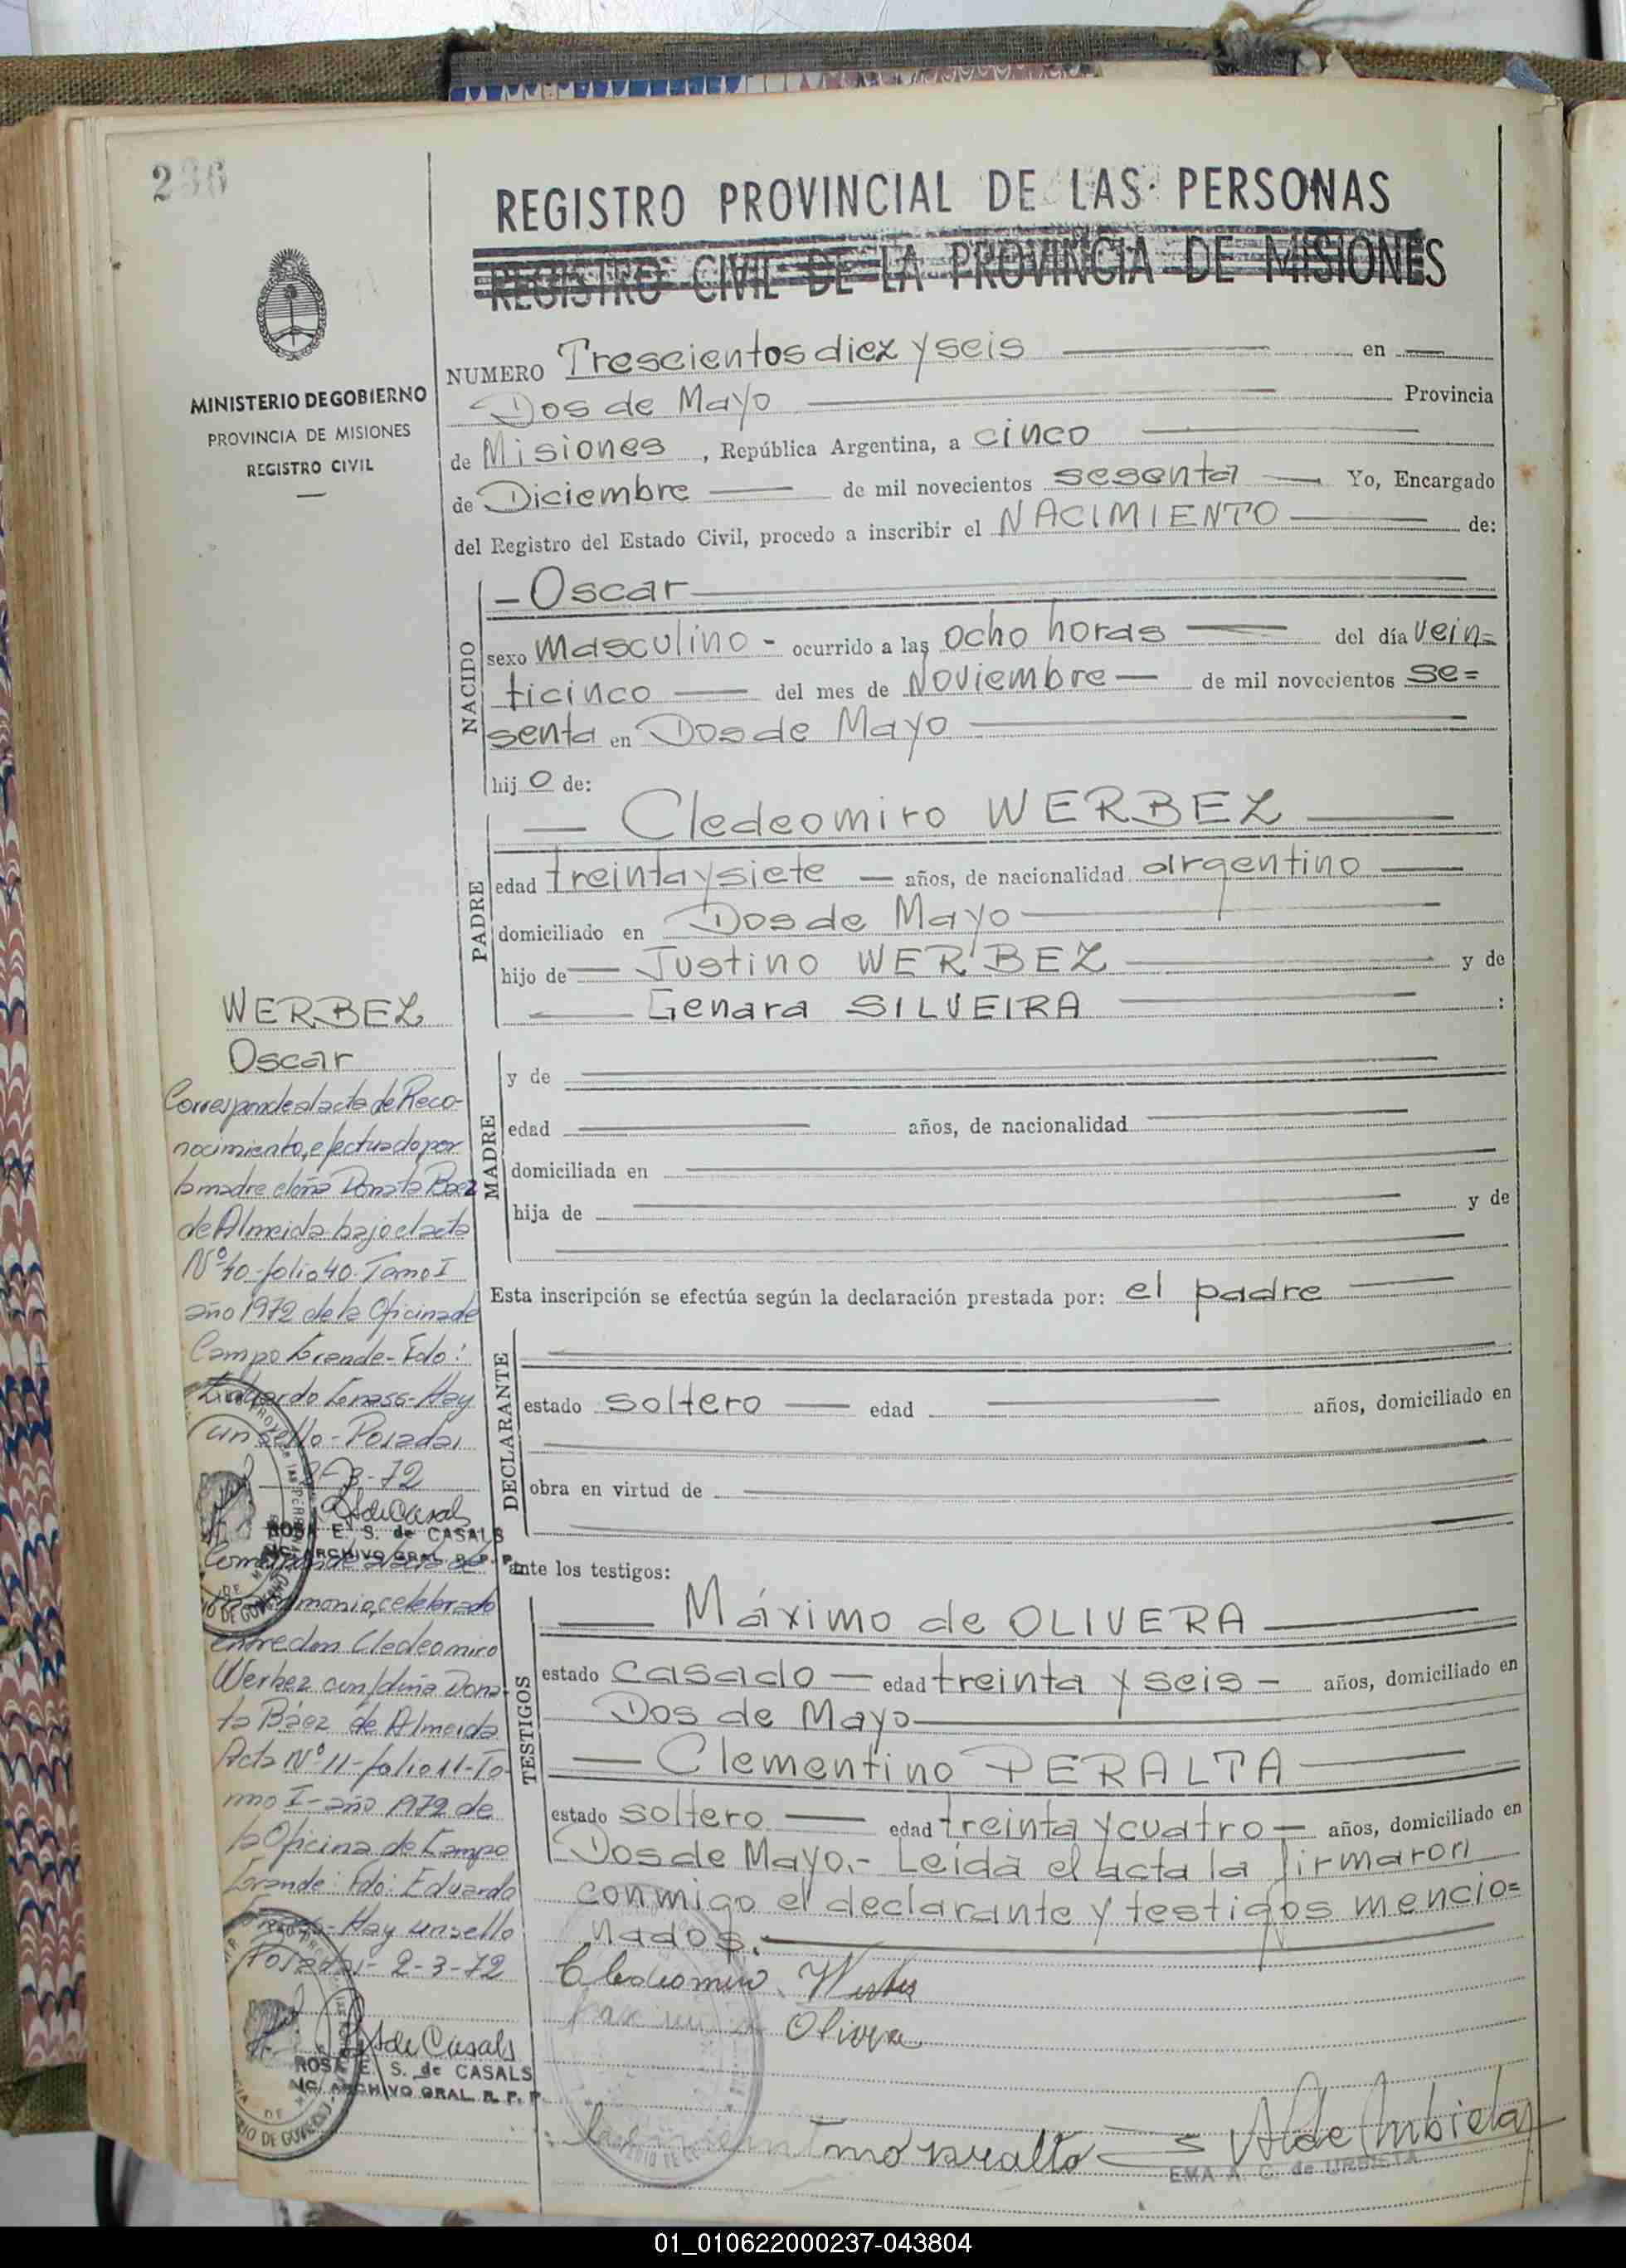 236
REGISTRO PROVINCIAL DE LAS PERSONAS
REGISTRO CIVIL DE LA PROVINCIA DE MISIONES
MINISTERIO DE GOBIERNO
PROVINCIA DE MISIONES
REGISTRO CIVIL
NUMERO Trescientos diez y seis en
Dos de Mayo Provincia
de Misiones, República Argentina, a cinco
de Diciembre de mil novecientos sesenta Yo, Encargado
del Registro del Estado Civil, procedo a inscribir el NACIMIENTO de:
NACIDO
- Oscar
sexo masculino - ocurrido a las ocho horas del día vein=
ticinco del mes de Noviembre de mil novecientos se=
senta en Dos de Mayo
hij o de:
PADRE
Cledeomiro WERBEZ
edad treinta y siete años, de nacionalidad argentino
domiciliado en Dos de Mayo
hijo de Justino WERBEZ y de
Genara SILVEIRA :
MADRE
y de
edad años, de nacionalidad
domiciliada en
hija de y de
Esta inscripción se efectúa según la declaración prestada por: el padre
DECLARANTE
estado soltero edad años, domiciliado en
obra en virtud de
ante los testigos:
TESTIGOS
Máximo de OLIVERA
estado casado edad treinta y seis - años, domiciliado en
Dos de Mayo
Clementino PERALTA
estado soltero edad treinta y cuatro años, domiciliado en
Dos de Mayo.- Leída el acta la firmaron
conmigo el declarante y testigos mencio=
nados.
Cledeomiro Werbez
Olivera
peralta
EMA A. C. de URBIETA
WERBEZ
Oscar
Corresponde al acta de Reco-
nocimiento, efectuado por
la madre doña Donata Baez
de Almeida bajo el acta
Nº 40 folio 40. Tomo I
año 1972 de la Oficina de
Campo Grande - Fdo:
Eduardo - Hay
un sello - Posadas
2-3-72
ROSA E. S. de CASALS
ARCHIVO GRAL. R. P. P.
celebrado
entre don Cledeomiro
Werbez con doña Dona-
ta Báez de Almeida
Acta Nº 11 - folio 11 - To-
mo I - año 1972 de
la Oficina de Campo
Grande: Fdo: Eduardo
- Hay un sello
Posadas - 2-3-72
ROSA E. S. de CASALS
ARCHIVO GRAL. R. P. P.
01_010622000237-043804